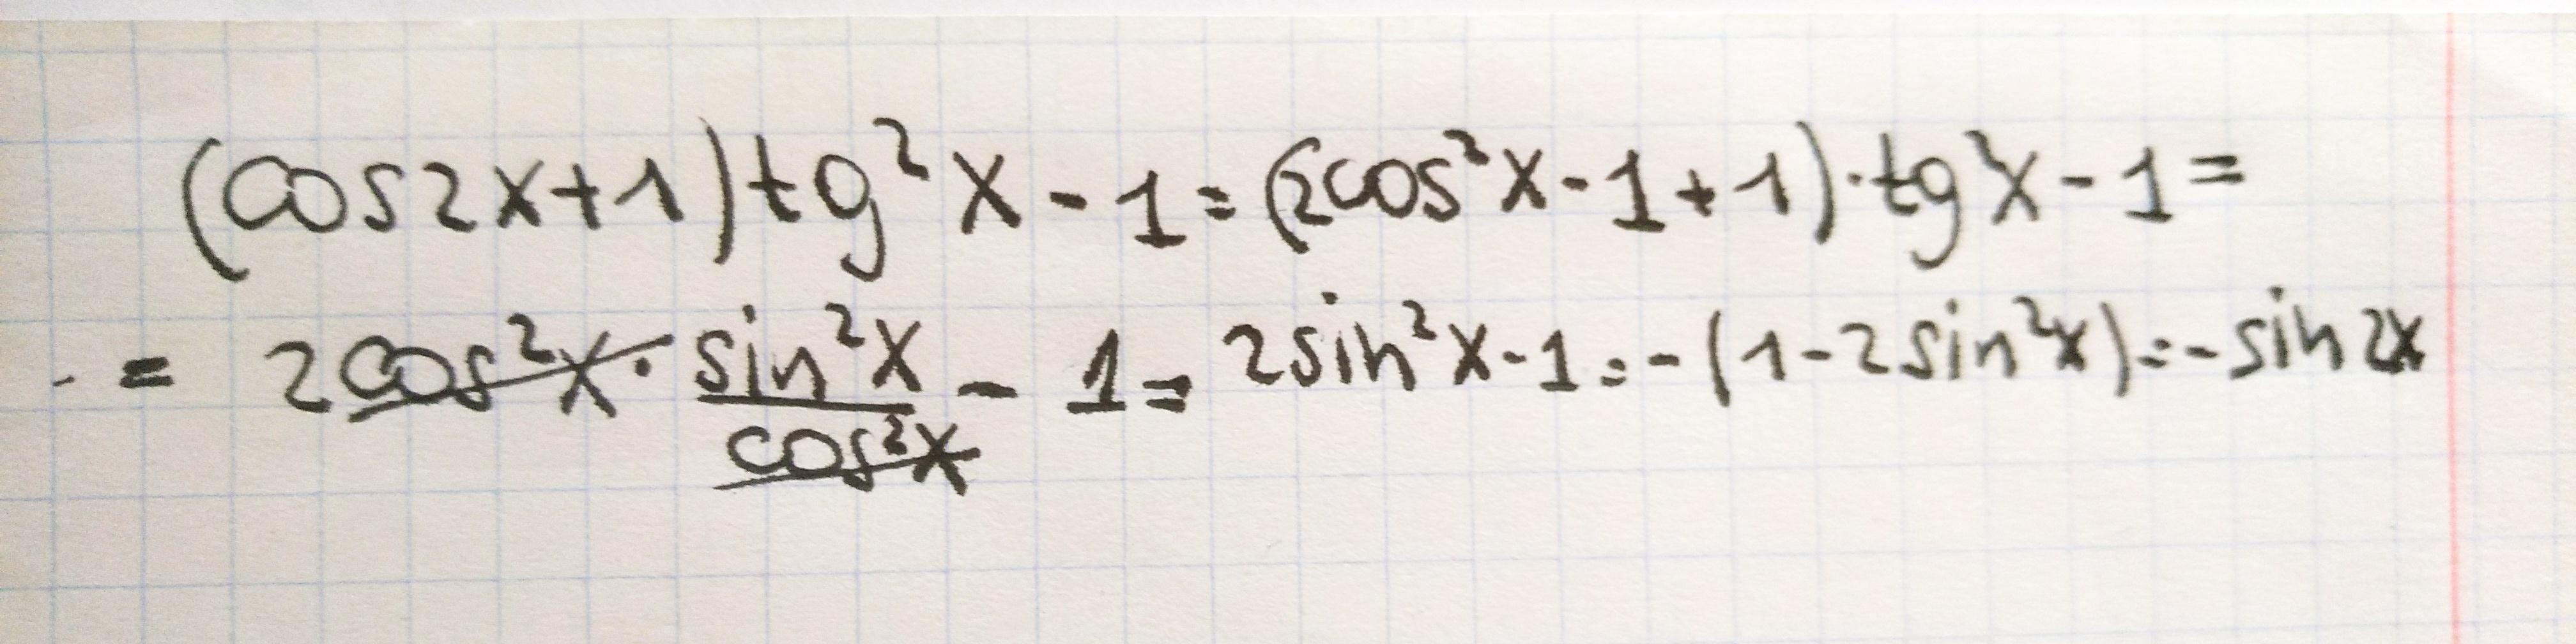 (cos2x+1)tg²x-1=(2cos²x-1+1)·tg²x-1=
= 2cos²x·sin²x/cos²x-1=2sin²x-1=-(1-2sin²x)=-sin2x